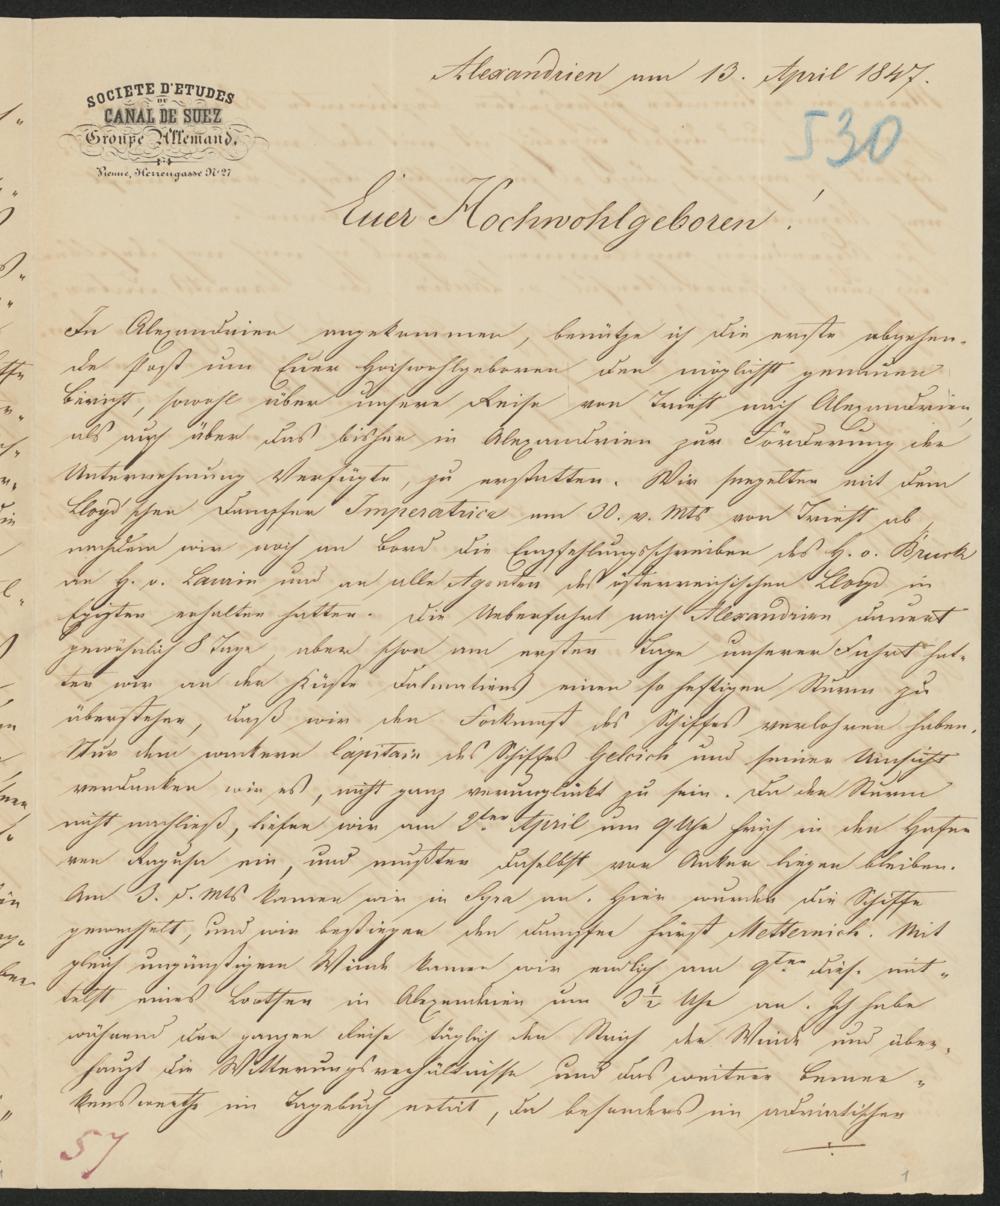 Alexandrien am 13. April 1847.
SOCIETE D'ETUDES
DU
CANAL DE SUEZ
Groupe Allemand.
Vienne, Herrengasse No 27
530
Euer Hochwohlgeboren!
In Alexandrien angekommen, benütze ich die erste abgehen-
de Post um Euer Hochwohlgeboren den möglichst genauen
Bericht, sowohl über unsere Reise von Triest nach Alexandrien,
als auch über das bisher in Alexandrien zur Förderung der
Unternehmung Verfügte, zu erstatten. Wir seegelten mit dem
Lloyd'schen Dampfer Imperatrice am 30. v. Mts von Triest ab,
nachdem wir noch an Bord die Empfehlungsschreiben des H. v. Bruck
an H. v. Laurin und an alle Agenten des österreichischen Lloyd in
Egipten erhalten hatten. Die Ueberfahrt nach Alexandrien dauert
gewöhnlich 8 Tage, aber schon am ersten Tage unserer Fahrt hat-
ten wir an der Küste Dalmatiens einen so heftigen Sturm zu
überstehen, daß wir den Fockmast des Schiffes verlohren haben.
Nur dem wackern Capitain des Schiffes Gelcich und seiner Umsicht
verdanken wir es, nicht ganz verunglückt zu sein. Da der Sturm
nicht nachließ, liefen wir am April um 9 Uhr früh in den Hafen
von Ragusa ein, und mußten daselbst vor Anker liegen bleiben.
Am 3. d. Mts kamen wir in Syra an. Hier wurden die Schiffe
gewechselt, und wir bestiegen den Dampfer Fürst Metternich. Mit
gleich ungünstigem Winde kamen wir endlich am 9ten dies. mit-
telst eines Lootsen in Alexandrien um 3½ Uhr an. Ich habe
während der ganzen Reise täglich den Strich der Winde und über-
haupt die Witterungsverhältnisse und das weitere Bemer-
kenswerthe im Tagebuch notirt, da besonders im adriatischen
57
1